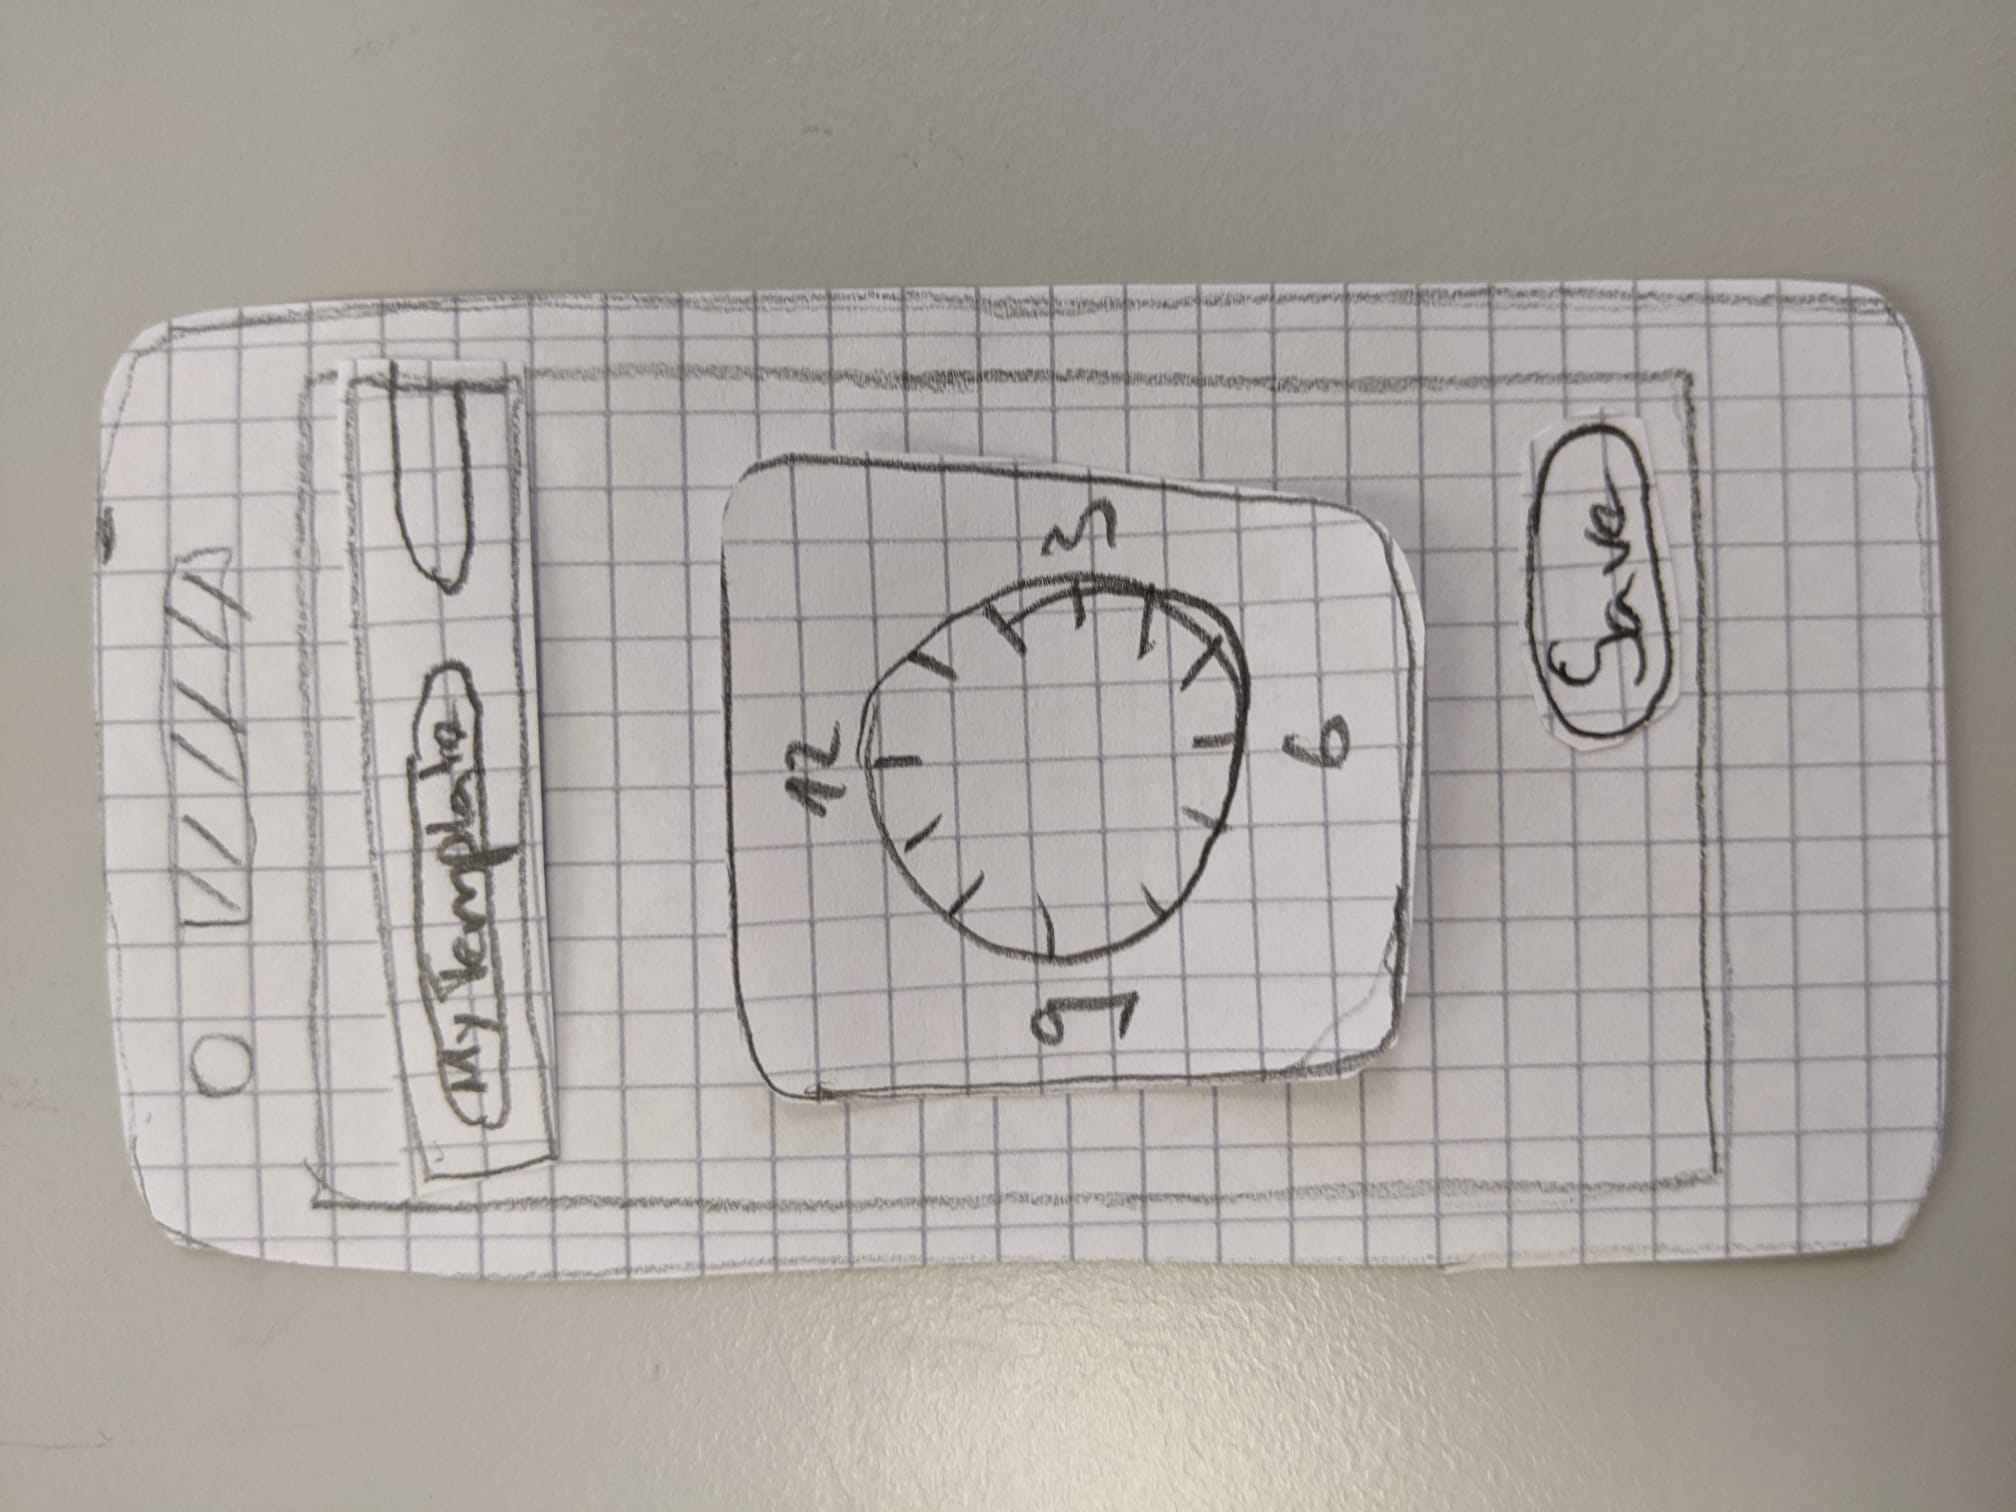 My Template
12
9 3
6
Save